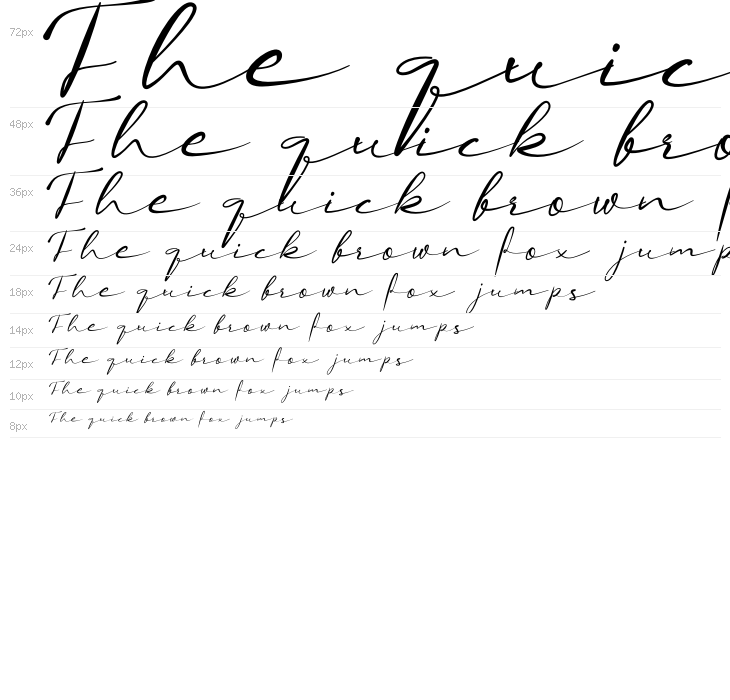 72px The quic
48px The quick bro
36px The quick brown
24px The quick brown fox jump
18px The quick brown fox jumps
14px The quick brown fox jumps
12px The quick brown fox jumps
10px The quick brown fox jumps
8px The quick brown fox jumps